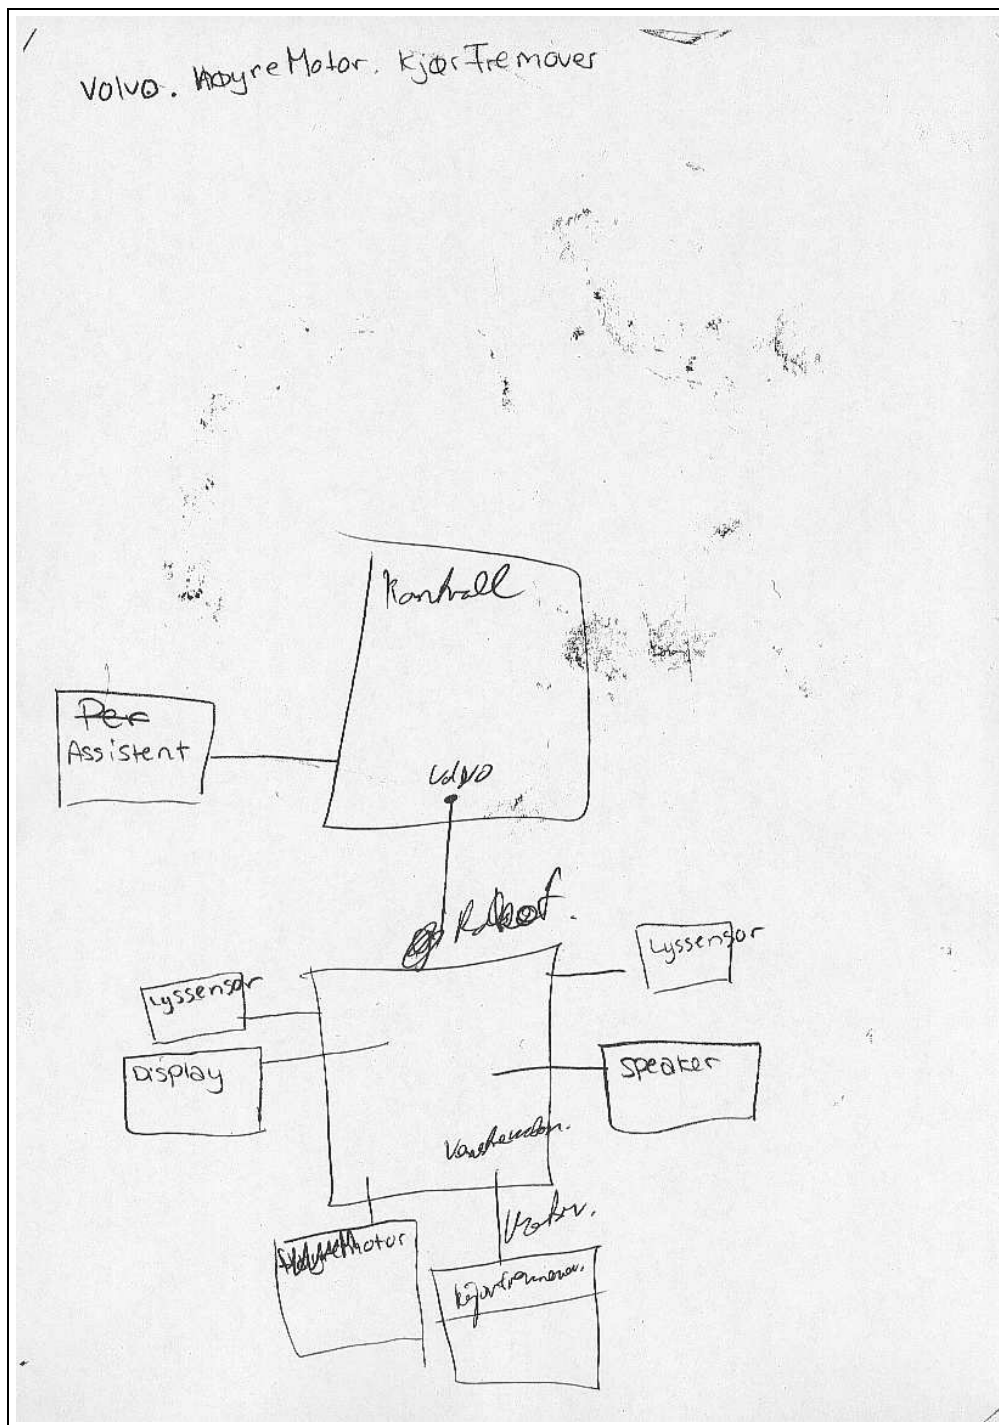 Volvo. HøyreMotor. KjørFremover
Kontroll
Per
Assistent
Volvo
Robot.
Lyssensor
Lyssensor
Display
Speaker
Motor.
Motor
KjørFremover.